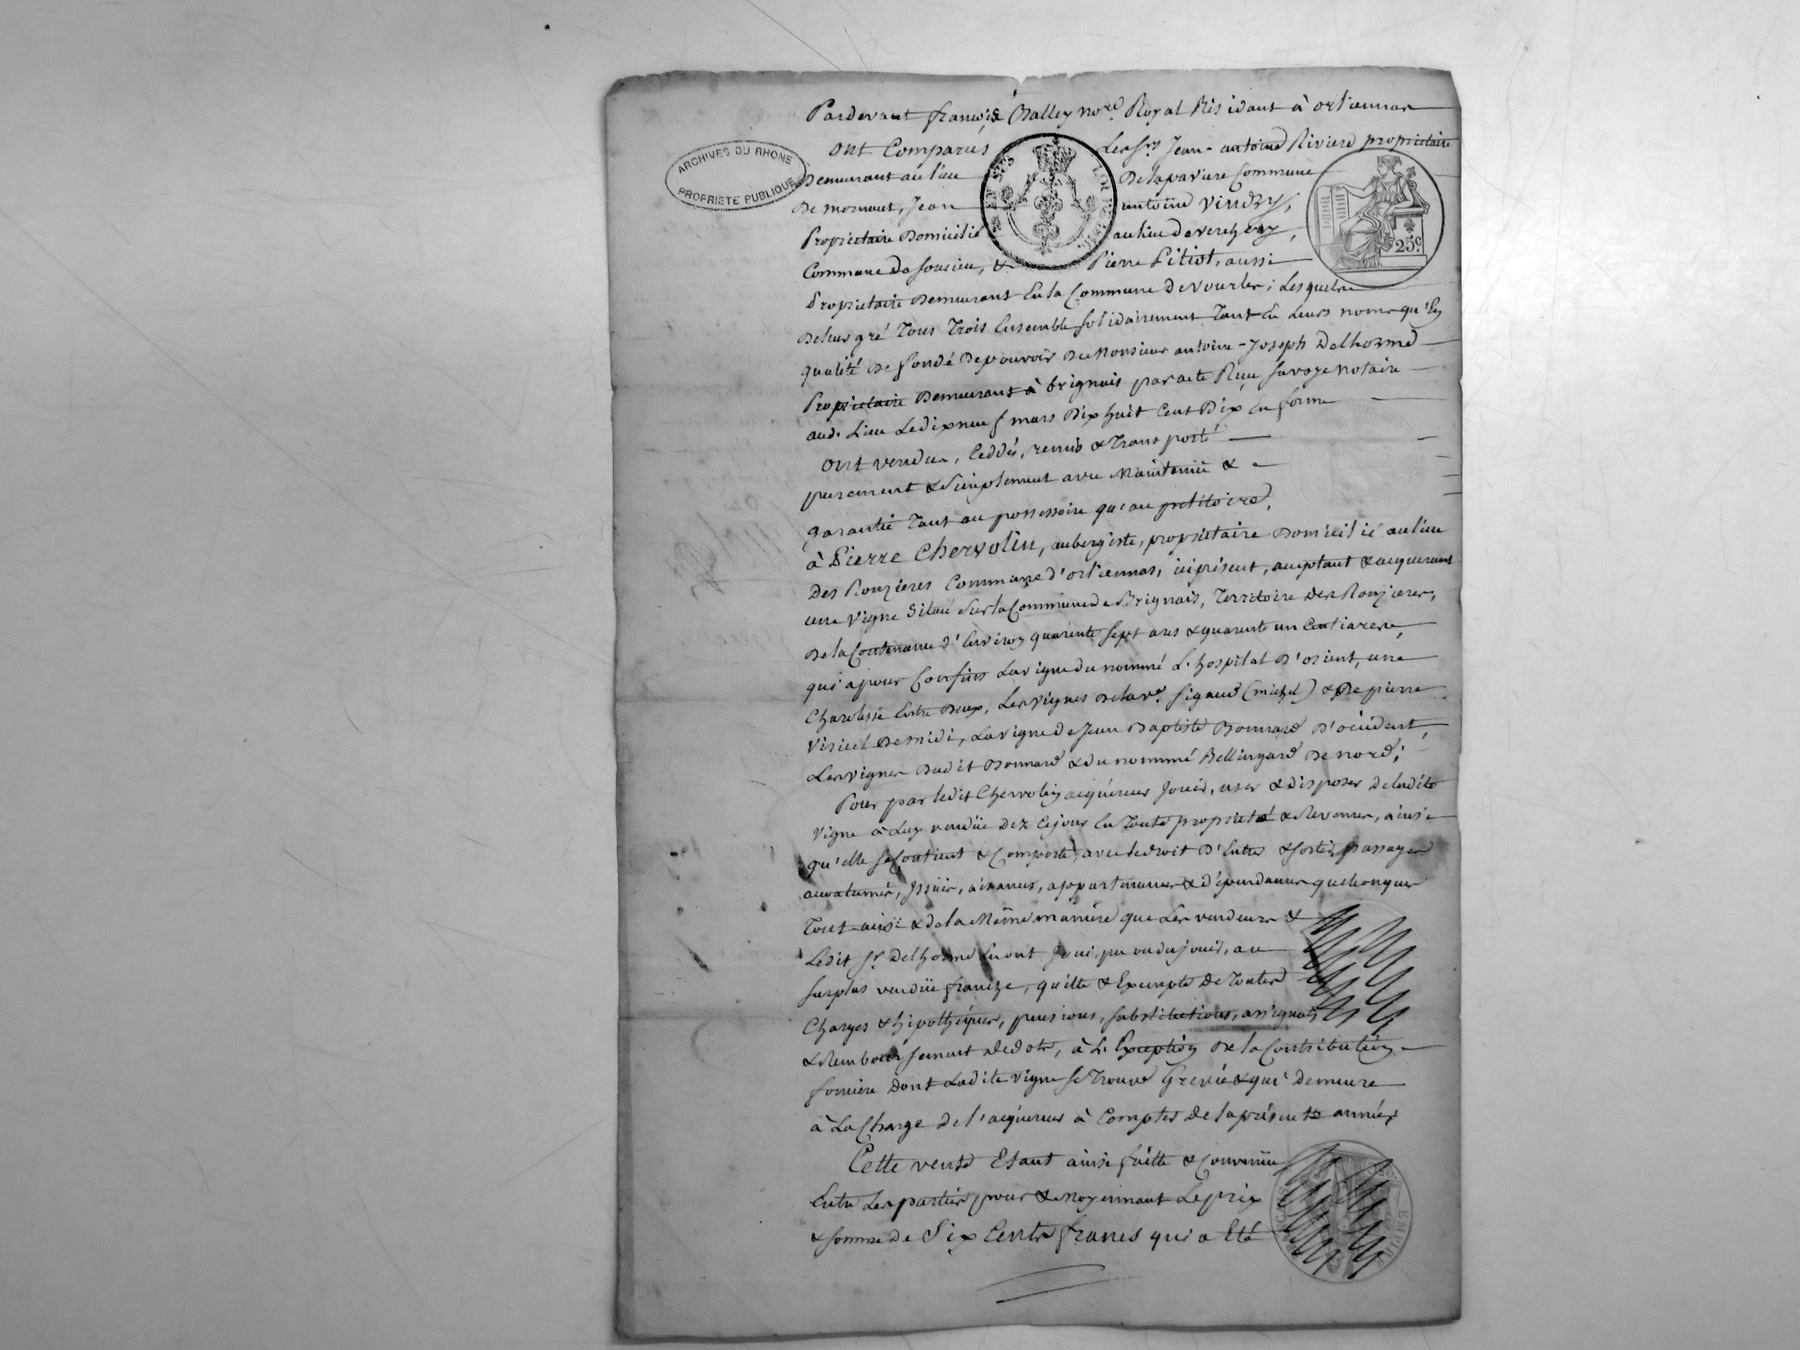 Pardevant françois Balley no.re Royal Résidant à orliennas
ARCHIVES DU RHONE
PROPRIÉTÉ PUBLIQUE
ont Comparus Les srs Jean-antoine Riviere propriétaire
Demeurant au lieu De lapaviere Commune
De mornant, Jean antoine Vindry,
Propriétaire Domicilié au lieu de verchery,
Commune de soucieu, & Pierre Pitiot, aussi
25c
Propriétaire Demeurant En la Commune De vourles; Lesquels
De leur gré Tous Trois Ensemble solidairement Tant En Leurs noms qu'En
qualité De fondé De pouvoir De Monsieur antoine-Joseph Delhorme
Propriétaire Demeurant à brignais par acte Reçu Savoye notaire
aud. Lieu Le dix neuf mars Dix huit Cent Dix En forme
ont vendu, Ceddés, remis & Transporté
purement & simplement avec Maintenüe &
garantie Tant au possessoire qu'au petitoire,
à Pierre Chervolin, aubergiste, propriétaire Domicilié au lieu
Des Ronzieres Commune d'orliennas, ici présent, acceptant & acquerant
une vigne située sur la Commune de Brignais, Territoire Des Ronzieres,
De la Contenance d'Environ quarente sept ares & quarante un Centiares,
qui a pour Confins La vigne du nommé L'hospital D'orient, une
Charolisse Entre Deux, Les vignes De la ve. Sigaud (michel) & De pierre
Viricel De midi, La vigne de Jean Baptiste Bonnard D'occident,
Les vignes Dudit Bonnard & du nommé Bellingard De nord;
Pour par ledit Chervolin acquéreur Jouir, user & disposer de ladite
vigne à Luy vendüe Dez Ce jour En Toute propriété & Revenus, ainsi
qu'elle se Contient & Comporte, avec le droit D'Entrer & sortir, passages
accoutumés, Issües, aisances, appartenances & dépendances quelconques
Tout ainsi & de la Même manière que Les vendeurs &
Ledit sr. Delhorme En ont Joui, pu ou du jouir, au
surplus vendüe franche, quitte & Exempte De Toutes
Charges & hipothèques, pensions, substitutions, assignats
& Remboursement de dots, à L'Exception De la Contribution
foncière Dont Ladite vigne se Trouve Grevée & qui Demeure
à La Charge de l'acquéreur à Compter de la présente année,
Cette vente Etant ainsi faitte & Convenüe
Entre Les parties pour & Moyennant Le prix
& somme de Six Cents francs qui a Eté